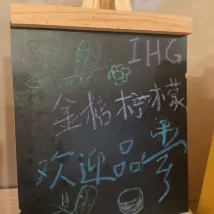 IHG
金桔柠檬
欢迎品尝